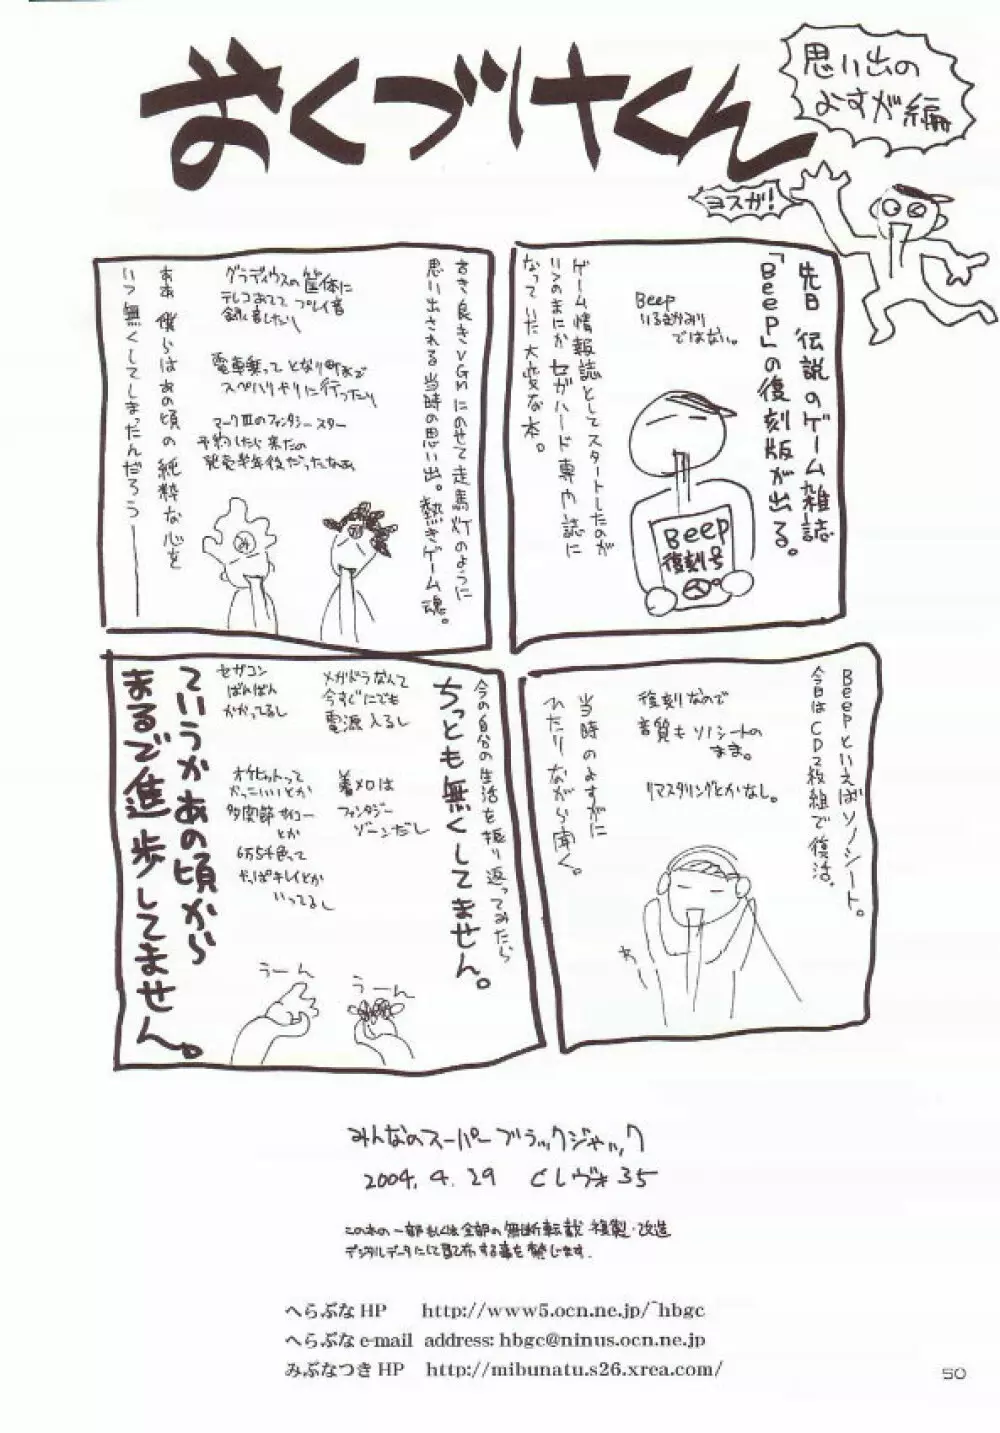 おくづけくん
思い出の
よすが編
ヨスガ！
先日、伝説のゲーム雑誌
「Beep」の復刻版が出る。
Beep
いるまかみり
ではない。
ゲーム情報誌としてスタートしたのが
いつのまにかセガハード専門誌に
なっていた大変な本。
Beep
復刻号
古き良きVGMにのせて走馬灯のように
思い出される当時の思い出。熱きゲーム魂。
グラディウスの筐体に
テレコあてて プレイ音
録音したり
電車乗って となり町まで
スペハリやりに行ったり
マークⅢのファンタシースター
予約したら来たの
発売半年後だったなぁ
ああ 僕らはあの頃の純粋な心を
いつ無くしてしまったんだろう――
Beepといえばソノシート。
今日はCD2枚組で復活。
復刻なので
音質もソノシートの
まま。
リマスタリングとかなし。
当時のよすがに
ひたりながら聞く。
今の自分の生活を振り返ってみたら
ちっとも無くしてません。
メガドラなんて
今すぐにでも
電源入るし
着メロは
ファンタジー
ゾーンだし
セガコン
ばんばん
かかってるし
オケヒットって
かっこいいとか
多関節サイコー
とか
6万5千色って
やっぱキレイとか
いってるし
うーん
うーん
ていうかあの頃から
まるで進歩してません。
みんなのスーパーブラックジャック
2004.4.29 Cレヴォ35
この本の一部もしくは全部の無断転載・複製・改造
デジタルデータにして配布する事を禁じます。
へらぶな HP http://www5.ocn.ne.jp/~hbgc
へらぶな e-mail address: hbgc@ninus.ocn.ne.jp
みぶなつき HP http://mibunatu.s26.xrea.com/
50